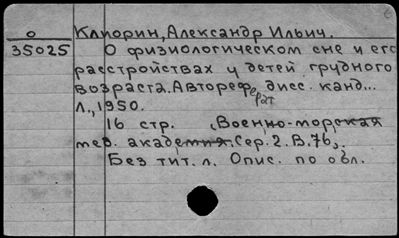 о Клиорин, Александр Ильич.
35025 О физиологическом сне и его
расстройствах у детей грудного
возраста. Автореферат дисс. канд...
Л., 1950.
16 стр. (Военно-морская
мед. академия. Сер. 2. В. 76).
Без тит. л. Опис. по обл.